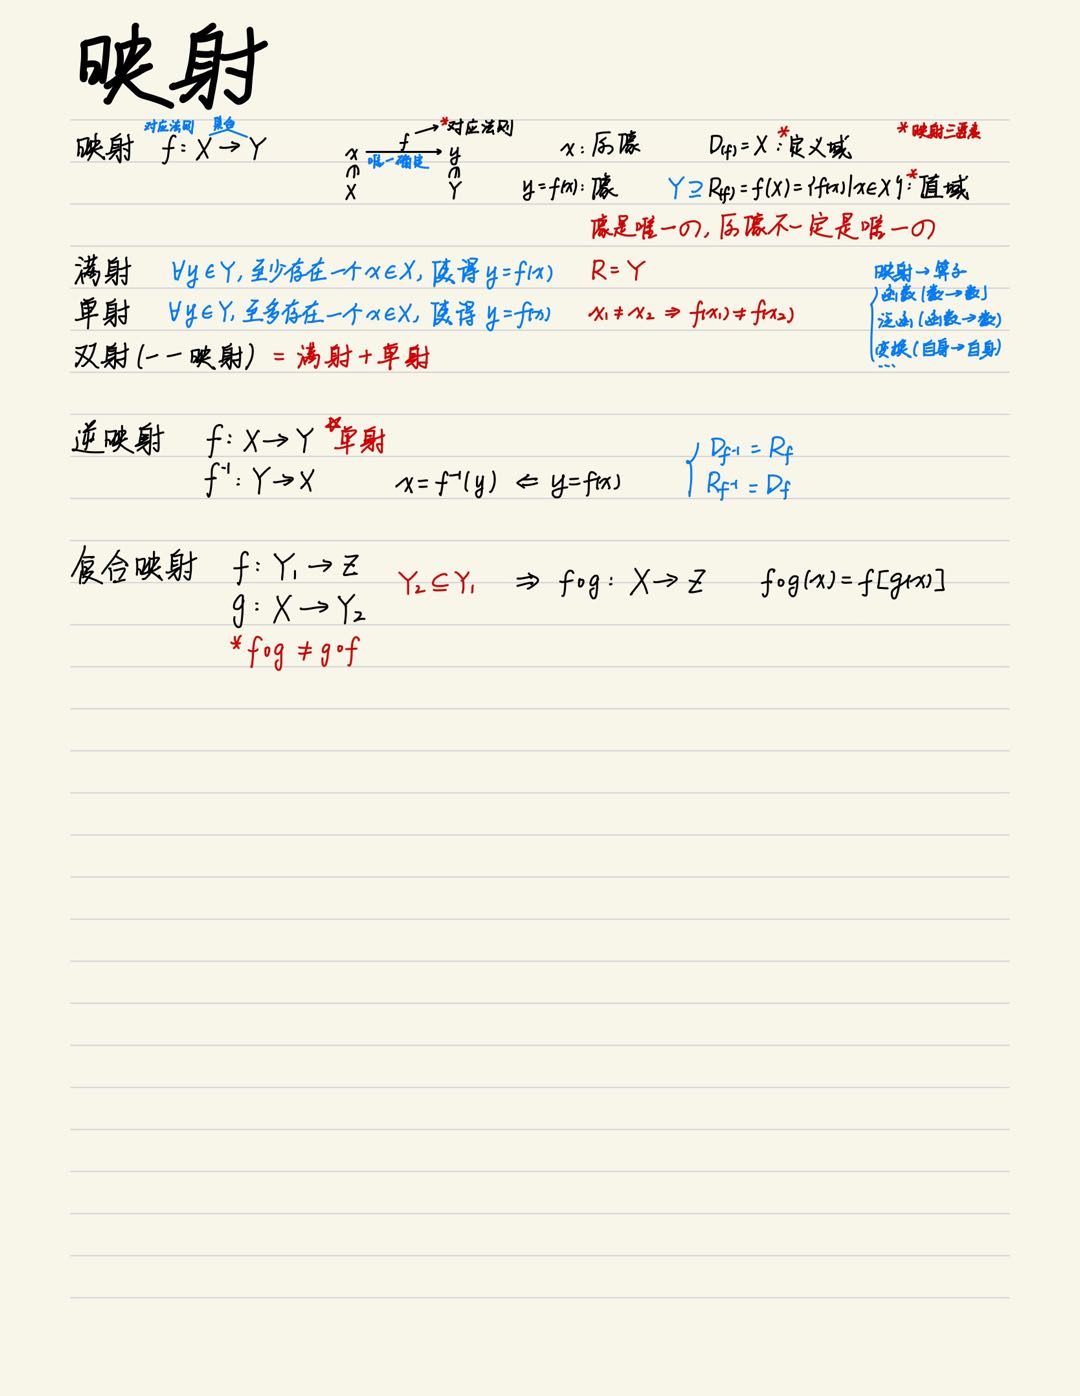 映射
对应法则 集合
映射 f: X → Y
f → *对应法则
x → y 唯一确定
∩ ∩
X Y
x: 原像 D(f) = X *: 定义域
*映射三要素
y = f(x): 像 Y ⊇ R(f) = f(X) = {f(x)|x∈X} *: 值域
像是唯一の, 原像不一定是唯一の
满射 ∀y∈Y, 至少存在一个x∈X, 使得 y=f(x) R = Y
单射 ∀y∈Y, 至多存在一个x∈X, 使得 y=f(x) x₁ ≠ x₂ ⇒ f(x₁) ≠ f(x₂)
双射(一一映射) = 满射 + 单射
映射→算子
函数(数→数)
泛函(函数→数)
变换(自身→自身)
...
逆映射 f: X → Y ☆单射
f⁻¹: Y → X x = f⁻¹(y) ⇐ y = f(x)
{ D_f⁻¹ = R_f
R_f⁻¹ = D_f
复合映射 f: Y₁ → Z
g: X → Y₂
Y₂ ⊆ Y₁ ⇒ f∘g: X → Z f∘g(x) = f[g(x)]
*f∘g ≠ g∘f